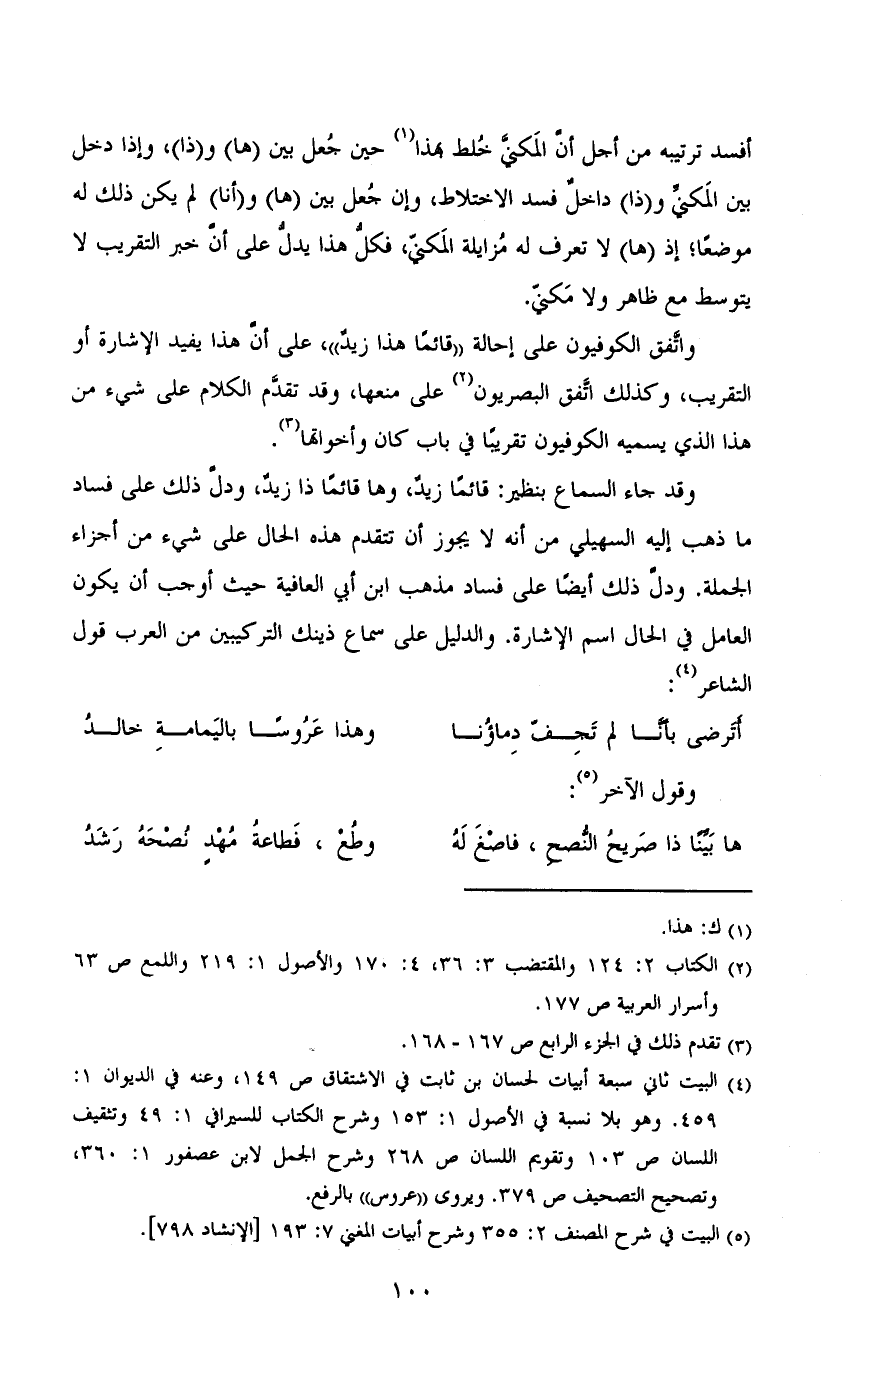 أفسد ترتيبه من أجل أنَّ المَكنيَّ خُلط بهذا(١) حين جُعل بين (ها) و(ذا)، وإذا دخل
بين المَكنيِّ و(ذا) داخلٌ فسد الاختلاط، وإن جُعل بين (ها) و(أنا) لم يكن ذلك له
موضعًا؛ إذ (ها) لا تعرف له مُزايلة المَكنيّ، فكلُّ هذا يدلُّ على أنَّ خبر التقريب لا
يتوسط مع ظاهر ولا مَكنيّ.
واتَّفق الكوفيون على إحالة ((قائمًا هذا زيدٌ))، على أنَّ هذا يفيد الإشارة أو
التقريب، وكذلك اتَّفق البصريون(٢) على منعها، وقد تقدَّم الكلام على شيء من
هذا الذي يسميه الكوفيون تقريبًا في باب كان وأخواتها(٣).
وقد جاء السماع بنظير: قائمًا زيدٌ، وها قائمًا ذا زيدٌ، ودلَّ ذلك على فساد
ما ذهب إليه السهيلي من أنه لا يجوز أن تتقدم هذه الحال على شيء من أجزاء
الجملة. ودلَّ ذلك أيضًا على فساد مذهب ابن أبي العافية حيث أوجب أن يكون
العامل في الحال اسم الإشارة. والدليل على سماع ذينك التركيبين من العرب قول
الشاعر(٤):
أَتَرضى بأنَّـا لم تَجِـفّ دِماؤُنـا وهذا عَرُوسًـا باليَمامـةِ خالـدُ
وقول الآخر(٥):
ها بَيِّنًا ذا صَرِيحُ النُّصحِ ، فاصْغَ لَهُ وطُعْ ، فَطاعةُ مُهْدٍ نُصْحَهُ رَشَدُ
(١) ك: هذا.
(٢) الكتاب ٢: ١٢٤ والمقتضب ٣: ٣٦، ٤: ١٧٠ والأصول ١: ٢١٩ واللمع ص ٦٣
وأسرار العربية ص ١٧٧.
(٣) تقدم ذلك في الجزء الرابع ص ١٦٧ - ١٦٨.
(٤) البيت ثاني سبعة أبيات لحسان بن ثابت في الاشتقاق ص ١٤٩، وعنه في الديوان ١:
٤٥٩. وهو بلا نسبة في الأصول ١: ١٥٣ وشرح الكتاب للسيرافي ١: ٤٩ وتثقيف
اللسان ص ١٠٣ وتقويم اللسان ص ٢٦٨ وشرح الجمل لابن عصفور ١: ٣٦٠،
وتصحيح التصحيف ص ٣٧٩. ويروى ((عروس)) بالرفع.
(٥) البيت في شرح المصنف ٢: ٣٥٥ وشرح أبيات المغني ٧: ١٩٣ [الإنشاد ٧٩٨].
١٠٠